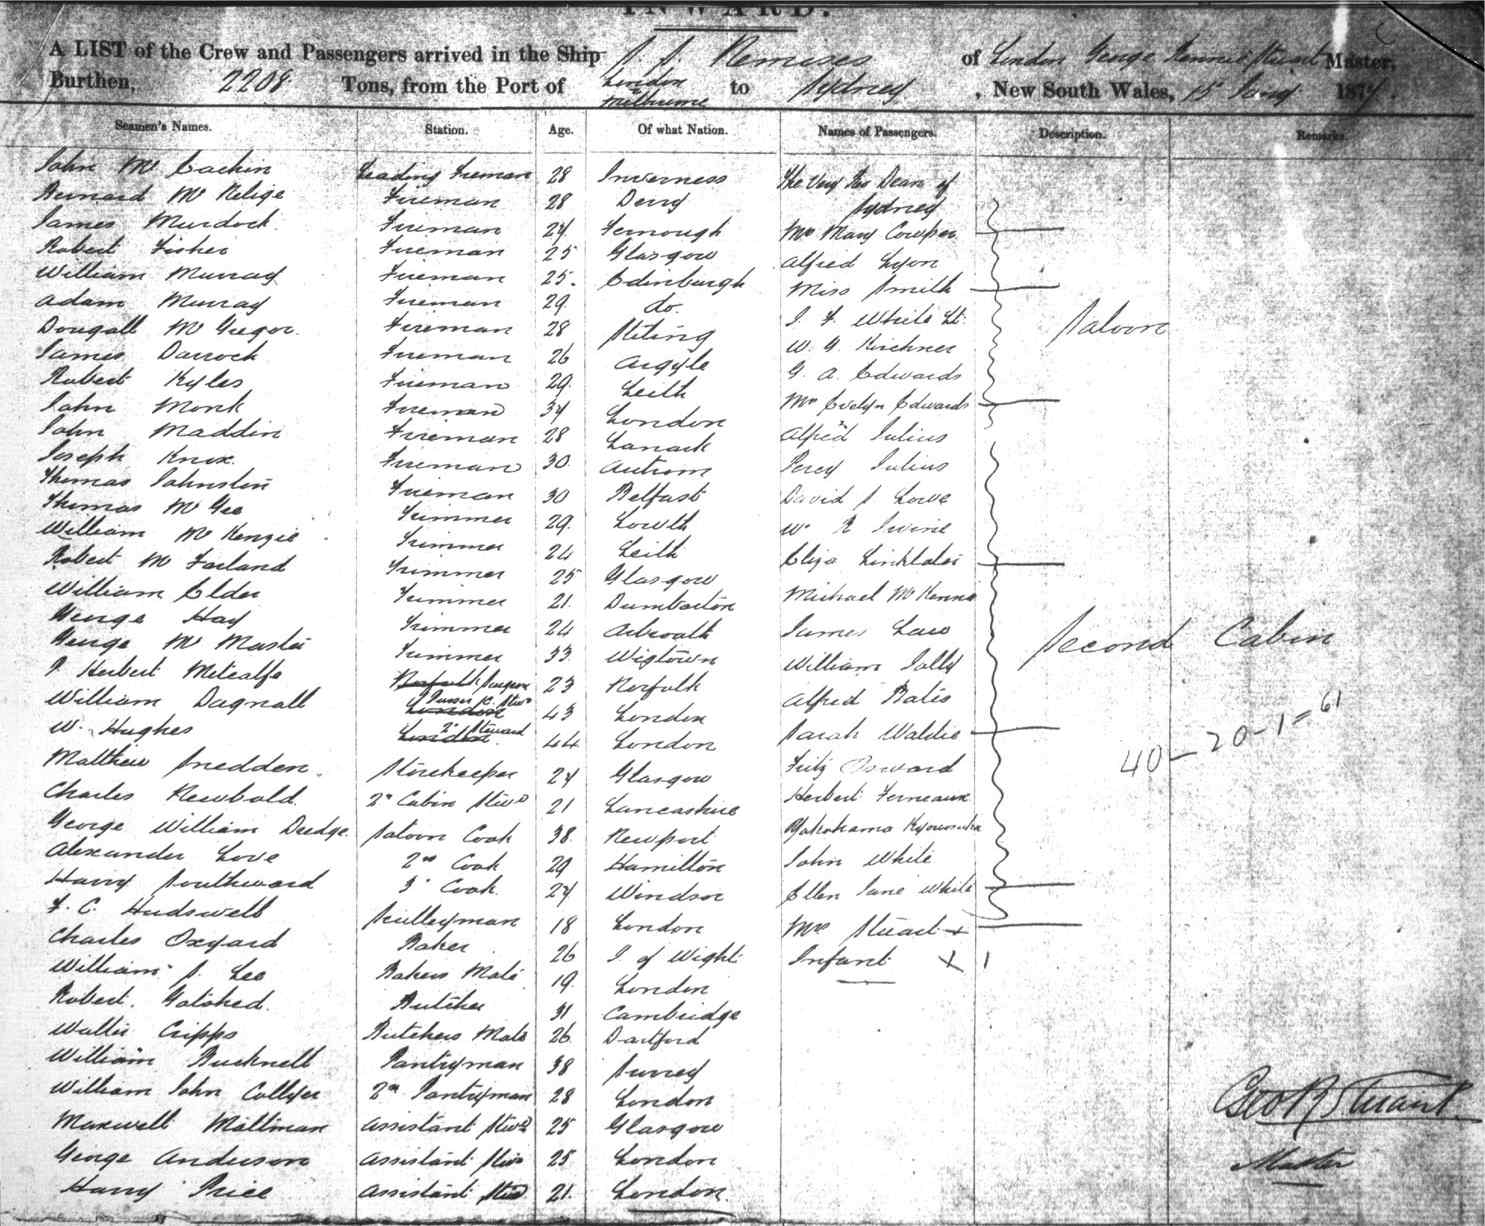 INWARD.
A LIST of the Crew and Passengers arrived in the Ship S. S. Nemesis of London George Rennie Stuart Master,
Burthen, 2208 Tons, from the Port of London Melbourne to Sydney, New South Wales, 15 Jany 187
Seamen's Names. Station. Age. Of what Nation. Names of Passengers. Description. Remarks.
John Mc Eachin Leading Fireman 28 Inverness The Very Rev Dean of
Bernard Mc Nelige Fireman 28 Derry Sydney
James Murdock Fireman 24 Mrs Mary Cowper
Robert Fisher Fireman 25 Glasgow Alfred Lyon
William Murray Fireman 25. Edinburgh Miss Smith
Adam Murray Fireman 29 do. J. F. White Lt.
Dougall Mc Gregor. Fireman 28 Stiling W. G. Kirchner Saloon
James Darrock Fireman 26 Argyle G. A. Edwards
Robert Kyles Fireman 29 Leith Mrs Evelyn Edwards
John Monk Fireman 34 London Alfred Julius
John Maddin Fireman 28 Lanark Percy Julius
Joseph Knox. Fireman 30 Antrim David S Lowe
Thomas Johnston Fireman 30 Belfast W. R Irvine
Thomas Mc Gee Trimmer 29 Lowth Eliza Linklater
William Mc Kenzie Trimmer 24 Leith Michael McKenna
Robert Mc Farland Trimmer 25 Glasgow James Law
William Elder Trimmer 21. Dumbarton William Jolly
George Hay Trimmer 24 Arbroath Alfred Bates Second Cabin
George Mc Master Trimmer 33 Wigtown Sarah Waldie
J. Herbert Metcalfe Norfolk Surgeon 23 Norfolk Fritz Osward
William Dagnall London Purser & Stwd 43 London Herbert Ferneaux
W. Hughes London 2d Steward 44 London Yokohama
Matthew Snedden. Storekeeper 24 Glasgow John White 40-20-1=61
Charles Newbold 2d Cabin Stwd 21 Lancashire Ellen Jane White
George William Dredge Saloon Cook 38 Newport Mrs Stuart +
Alexander Love 2nd Cook 29 Hamilton Infant X 1
Harry Southward 3d Cook 24 Windsor
F. C. Hudswell Sculleyman 18 London
Charles Oxyard Baker 26 I of Wight
William S. Lee Bakers Mate 19. London
Robert. Gotobed. Butcher 31 Cambridge
Walter Cripps Butchers Mate 26 Dartford
William Bucknell Pantryman 38 Surrey
William John Collyer 2nd Pantryman 28 London
Maxwell Miltman Assistant Stwd 25 Glasgow
George Anderson Assistant Stwd 25 London
Harry Price Assistant Stwd 21. London.
Geo R Stuart.
Master